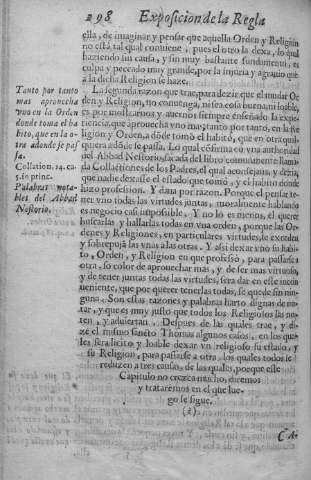 298 Exposicion de la Regla
ella, de imaginar y pensar que aquella Orden y Religion
no està tal qual conuiene, pues el otro la dexa, lo qual
haziendo sin causa, y sin muy bastante fundamento, es
culpa y peccado muy grande, por la injuria y agrauio que
a la dicha Religion se haze.
Tanto por tanto
mas aprouecha
vno en la Orden
donde toma el ha
bito, que en la o-
tra adonde se pas
sa.
Collation. 14. ca-
5. in princ.
Palabras nota-
bles del Abbad
Nestorio.
La segunda razon que trae, para dezir que el mudar Or
den y Religion, no conuenga, ni sea cosa buena ni loable,
es por mostrarnos y auernos siempre enseñado la expe
riencia, que aprouecha vno mas, tanto por tanto, en la Re
ligion y Orden, a dóde tomò el habito, que en otra qual-
quiera adóde se passa. Lo qual cófirma có vna authoridad
del Abbad Nestorio, sacada del libro comunmente llama
do Collationes de los Padres, el qual aconsejaua, y dezia,
que nadie dexasse el estado que tomò, y el camino donde
hizo profession. Y daua por razon. Porque el pensar te-
ner vno todas las virtudes juntas, moralmente hablando
es negocio casi impossible. Y no lo es menos, el querer
buscarlas y hallarlas todas en vna orden, porque las Or-
denes y Religiones, en particulares virtudes, se exceden
y sobrepojã las vnas a las otras. Y assi dexar vno su habi-
to, Orden, y Religion en que professò, para passarse a
otra, so color de aprouechar mas, y de ser mas virtuoso,
y de tener juntas todas las virtudes, sera dar en esse incon
ueniente, que por querer tenerlas todas, se quede sin nin-
guna. Son estas razones y palabras harto dignas de no-
tar, y que es muy justo que todos los Religiosos las no-
ten, y aduiertan. Despues de las quales trae, y di-
ze el mismo sancto Thomas algunos casos, en los qua-
les sera licito y loable dexar vn religioso su estado, y
su Religion, para passarse a otra, los quales todos se
reduzen a tres causas, de las quales, porque este
Capitulo no crezca mucho, diremos
y trataremos en el que lue-
go se sigue.
(?)
C A-